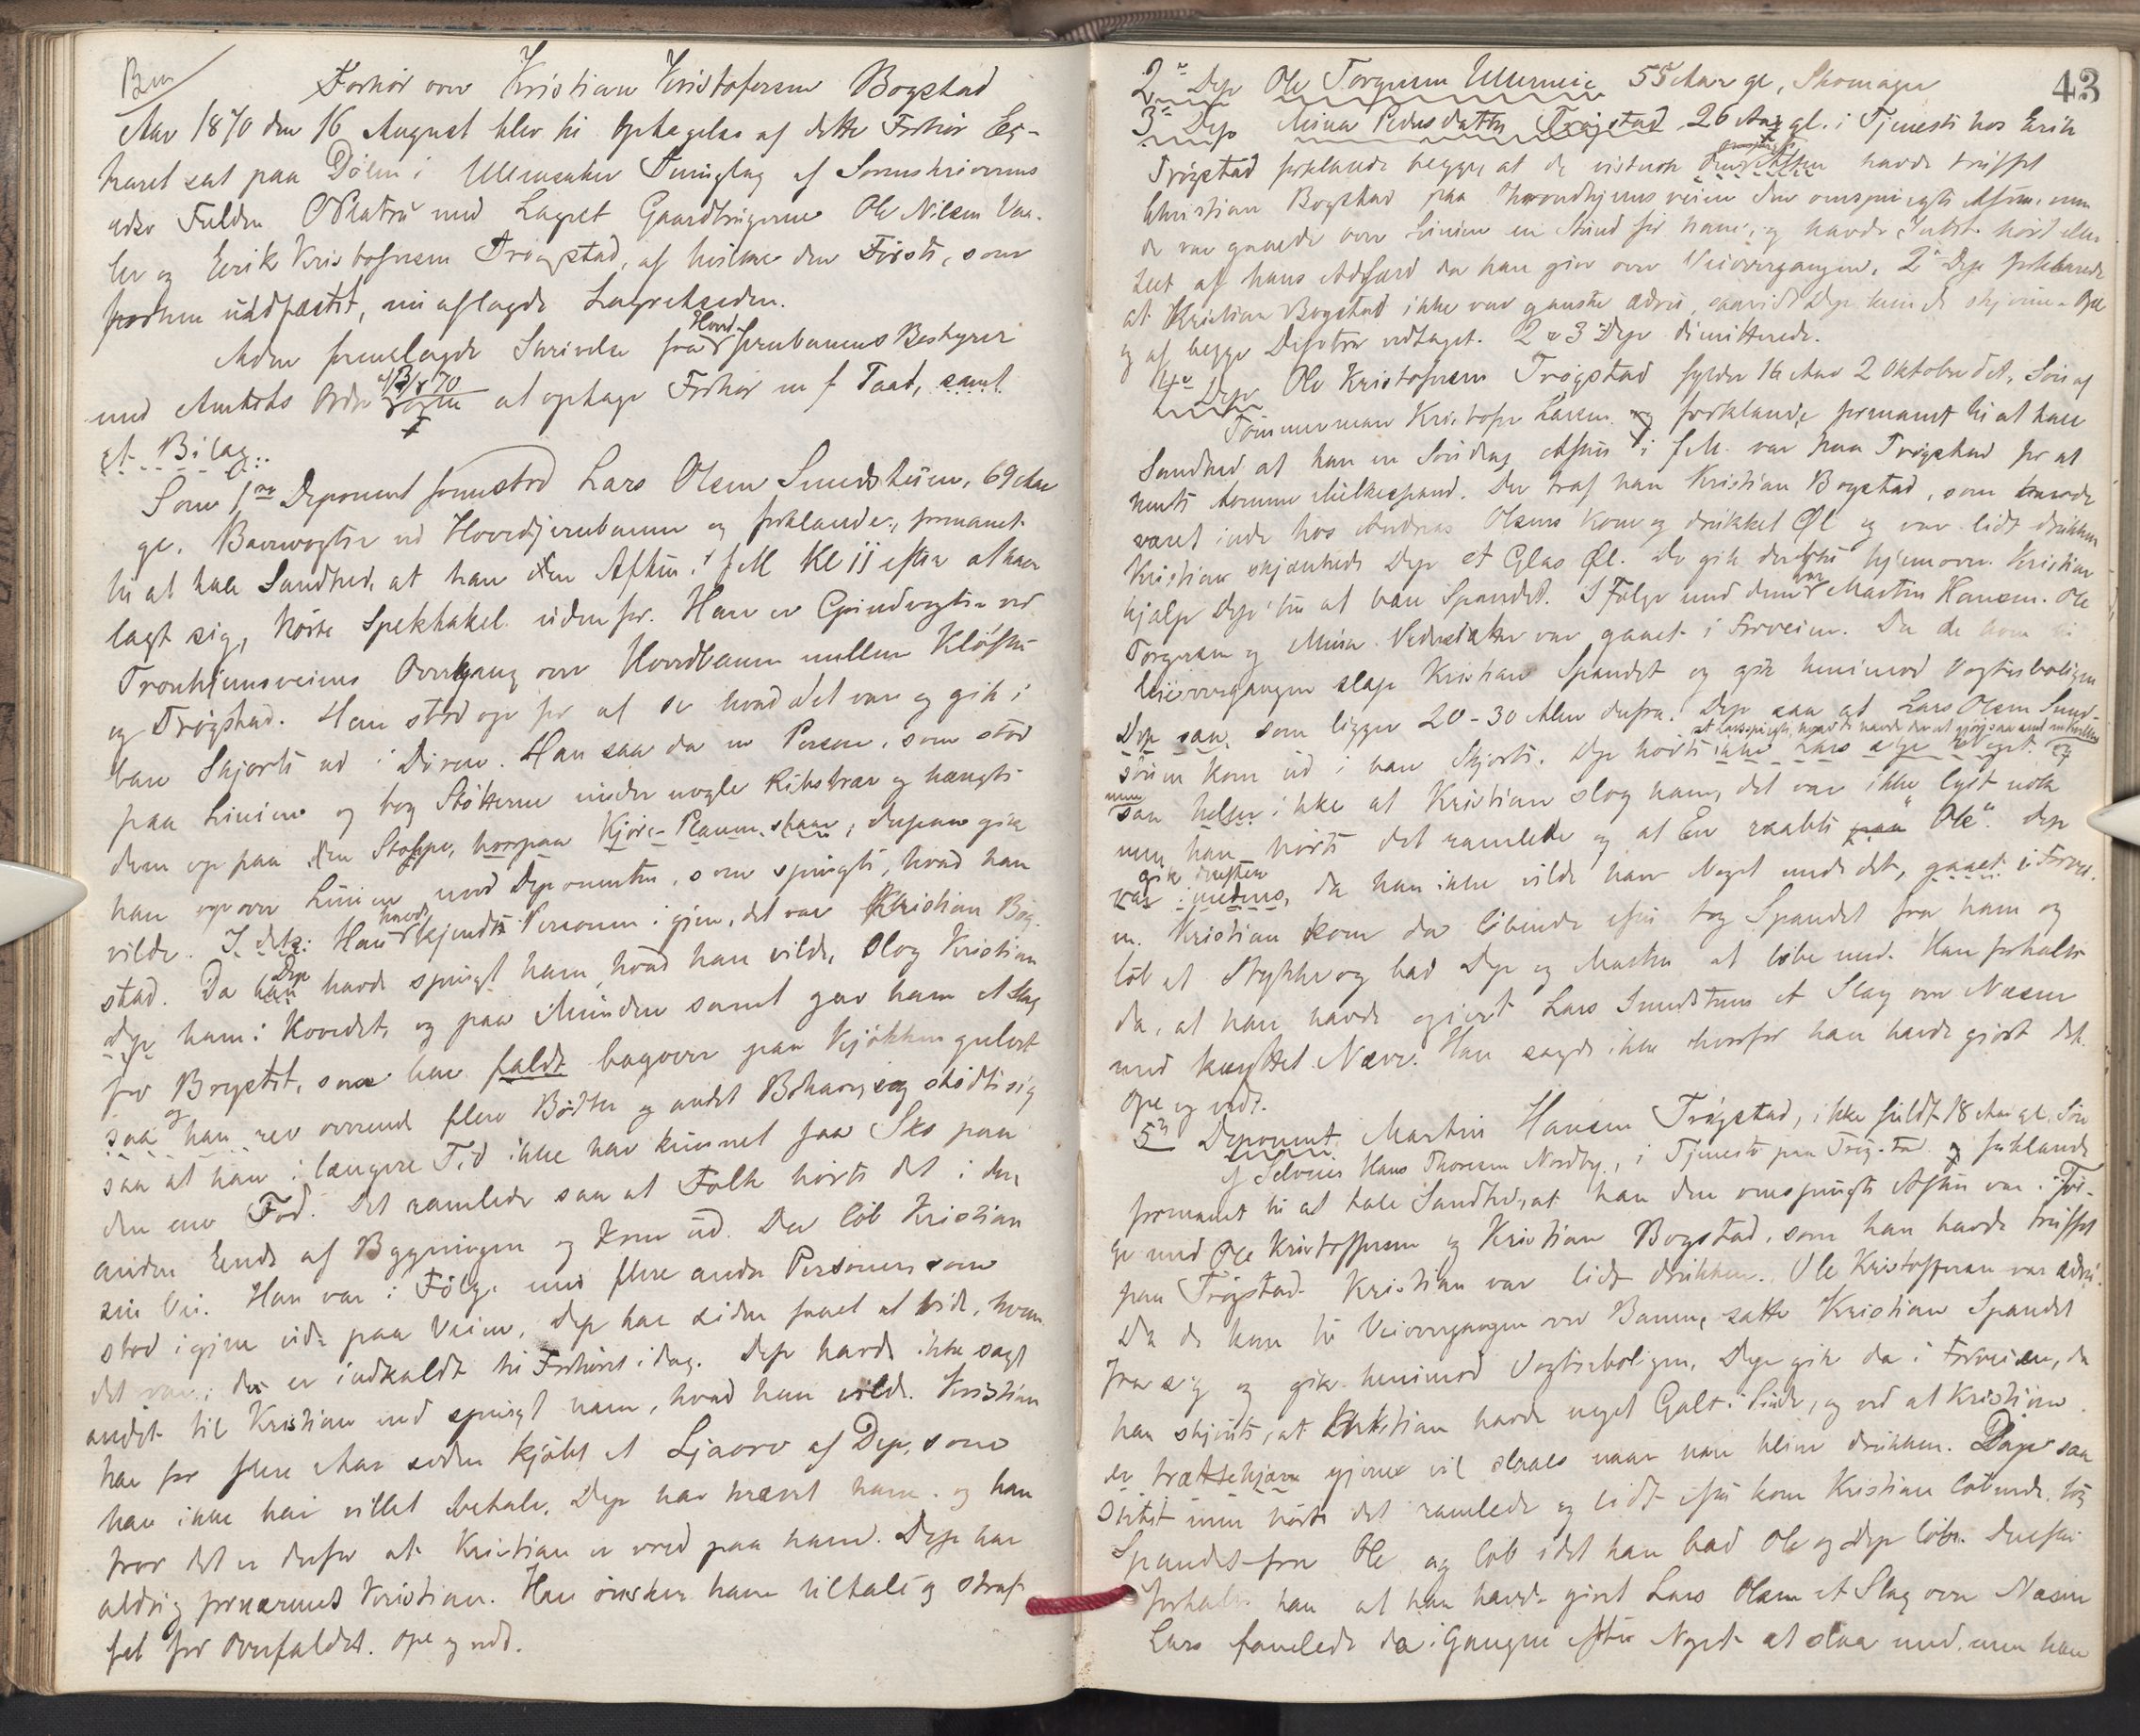 Forhør over Kristian Kristofersen Bogstad
Aar 1870 den 16 August blev til Optagelse af dette Forhør Ex-
traret sat paa Dølin i Ullensaker Tinglag af Sorenskriverens
med Lagret Gaardbrugerne Ole Nilsen Vaa-
ler og Erik Kristofersen Trøgstad, af hvilke den Første, som
forhen uædfæstet, nu aflagde Lagretseden.
Adm fremlagde Skrivelse fra Hoved Jernbanens Bestyrer
med Amtets Ordre af 13/8 70 at optage Forhør m f Taat, samt
et Bilag.
Som 1ste Deponent fremstod Lars Olsen Sundstuen, 69 Aar
gl. Banevogter ved Hovedjernbanen og forklarede, formanet
til at tale Sandhed, at han den Aften i f M Kl 11 efter at have
lagt sig, hørte Spektakel udenfor. Han er Grindvogter ved
Trondhjemsveiens Overgang over Hovedbanen mellem Kløften
og Trøgstad. Han stod op for at se hvad det var og gik i
bare Skjorte ud i Døren. Han saa da en Person, som stod
paa Linien og tog Støtterne under nogle Rikstrær og hængte
dem op paa den Stolpe, hvorpaa Kjøre-Planen staar; derpaa gik
han op over Linien mod Deponenten, som spurgte, hvad han
vilde. I det: Han havde kjendt Personen igjen, det var Kristian Bog-
stad. Da han Dep havde spurgt ham, hvad han vilde, slog Kristian
Dep ham i Hovedet, og paa Munden samt gav ham et Slag
for Brystet, som han faldt bagover paa Kjøkkengulvet
saa og han rev overende flere Bøtter og andet Bohave og stødte sig
saa at han i længere Tid ikke har kunnet faa Sko paa
den ene Fod. Det ramlede saa at Folk hørte det i den
anden Ende af Bygningen og kom ud. Da løb Kristian
sin Vei. Han var i Følge med flere andre Personer som
stod igjen ude paa Veien, Dep har siden faaet at vide, hvem
det var; de er indkaldt til Forhøret idag. Dep havde ikke sagt
andet til Kristian end spurgt ham, hvad han vilde. Kristian
har for flere Aar siden kjøbt et Ljaaorv af Dep, som
han ikke har villet betale. Dep har krævet ham og han
tror det er derfor at Kristian er vred paa ham. Dep har
aldrig fornærmet Kristian. Han ønsker ham tiltalt og straf-
fet for Overfaldet. Opl og vedt.
43
2n Dep Ole Torgersen Ullerneie 55 Aar gl, Skomager
3n Dep Mina Pedersdatter Trøgstad 26 Aar gl. i Tjeneste hos Erik
Trøgstad forklarede begge, at de havde truffet
Christian Bogstad paa Throndhjemsveien den omspurgte Aften, men
de var gaaede over Linien en Stund før ham, og havde Intet hørt eller
seet af hans Adfærd da han gik over Veiovergangen. 2n Dep forklarede
at Kristian Bogstad ikke var ganske ædru, saavidt Dep kunde skjønne. Opl
og af begge Depter vedtaget. 2 & 3 Dep dimitterede.
4de Dep Ole Kristofersen Trøgstad fylder 16 Aar 2 Oktober d A, Søn af
Tømmermand Kristofer Larsen og forklarede formanet til at tale
Sandhed at han en Søndag Aften i f M. var paa Trøgstad for at
hente tomme Melkespand. Der traf han Kristian Bogstad, som havde
været inde hos Andreas Olsens Kone og drukket Øl og var lidt drukken
Kristian skjænkede Dep et Glas Øl. De gik derefter hjemover. Kristian
hjalp Dep til at bære Spandet. I Følge med dem var Martin Hansen. Ole
Torgersen og Mina Pedersdatter var gaaet i Forveien. Da de kom til
Veiovergangen slap Kristian Spandet og gik henimod Vogterboligen
Dep saa, som ligger 20-30 Alen derfra. Dep saa at Lars Olsen Sund-
stuen kom ud i bare Skjorte. Dep hørte ikke Lars sige Noget og
men saa heller ikke at Kristian slog ham, det var ikke lyst nok
men han hørte det ramlede og at En raabte paa "Ole". Dep
var imedens, gik derefter da han ikke vilde have Noget med det, gaaet i Forvei-
en. Kristian kom da løbende efter tog Spandet fra ham og
løb et Stykke og bad Dep og Martin at løbe med. Han fortalte
da, at han havde givet Lars Sundstuen et Slag over Næsen
med knyttet Næve. Han sagde ikke hvorfor han havde gjort det.
Opl og vedt.
5n Deponent Martin Hansen Trøgstad, ikke fuldt 18 Aar gl. Søn
af Selveier Hans Thoresen Nordby, i Tjeneste paa Trøgstad og forklarede
formanet til at tale Sandhed, at han den omspurgte Aften var i Føl-
ge med Ole Kristoffersen og Kristian Bogstad, som han havde truffet
paa Trøgstad. Kristian var lidt drukken. Ole Kristoffersen var ædru.
Da de kom til Veiovergangen ved Banen, satte Kristian Spandet
fra sig og gik henimod Vogterboligen, Dep gik da i Forveien, da
han skjønte, at Kristian havde noget Galt i Sinde, og ved at Kristian
er trættekjær gjerne vil slaaes naar han bliver drukken. Dep saa
Intet men hørte det ramlede og lidt efter kom Kristian løbende, tog
Spandet fra Ole og løb idet han bad Ole og Dep løbe. Derefter
fortalte han at han havde givet Lars Olsen et Slag over Næsen
Lars famlede da i Gangen efter Noget at slaa med, men han